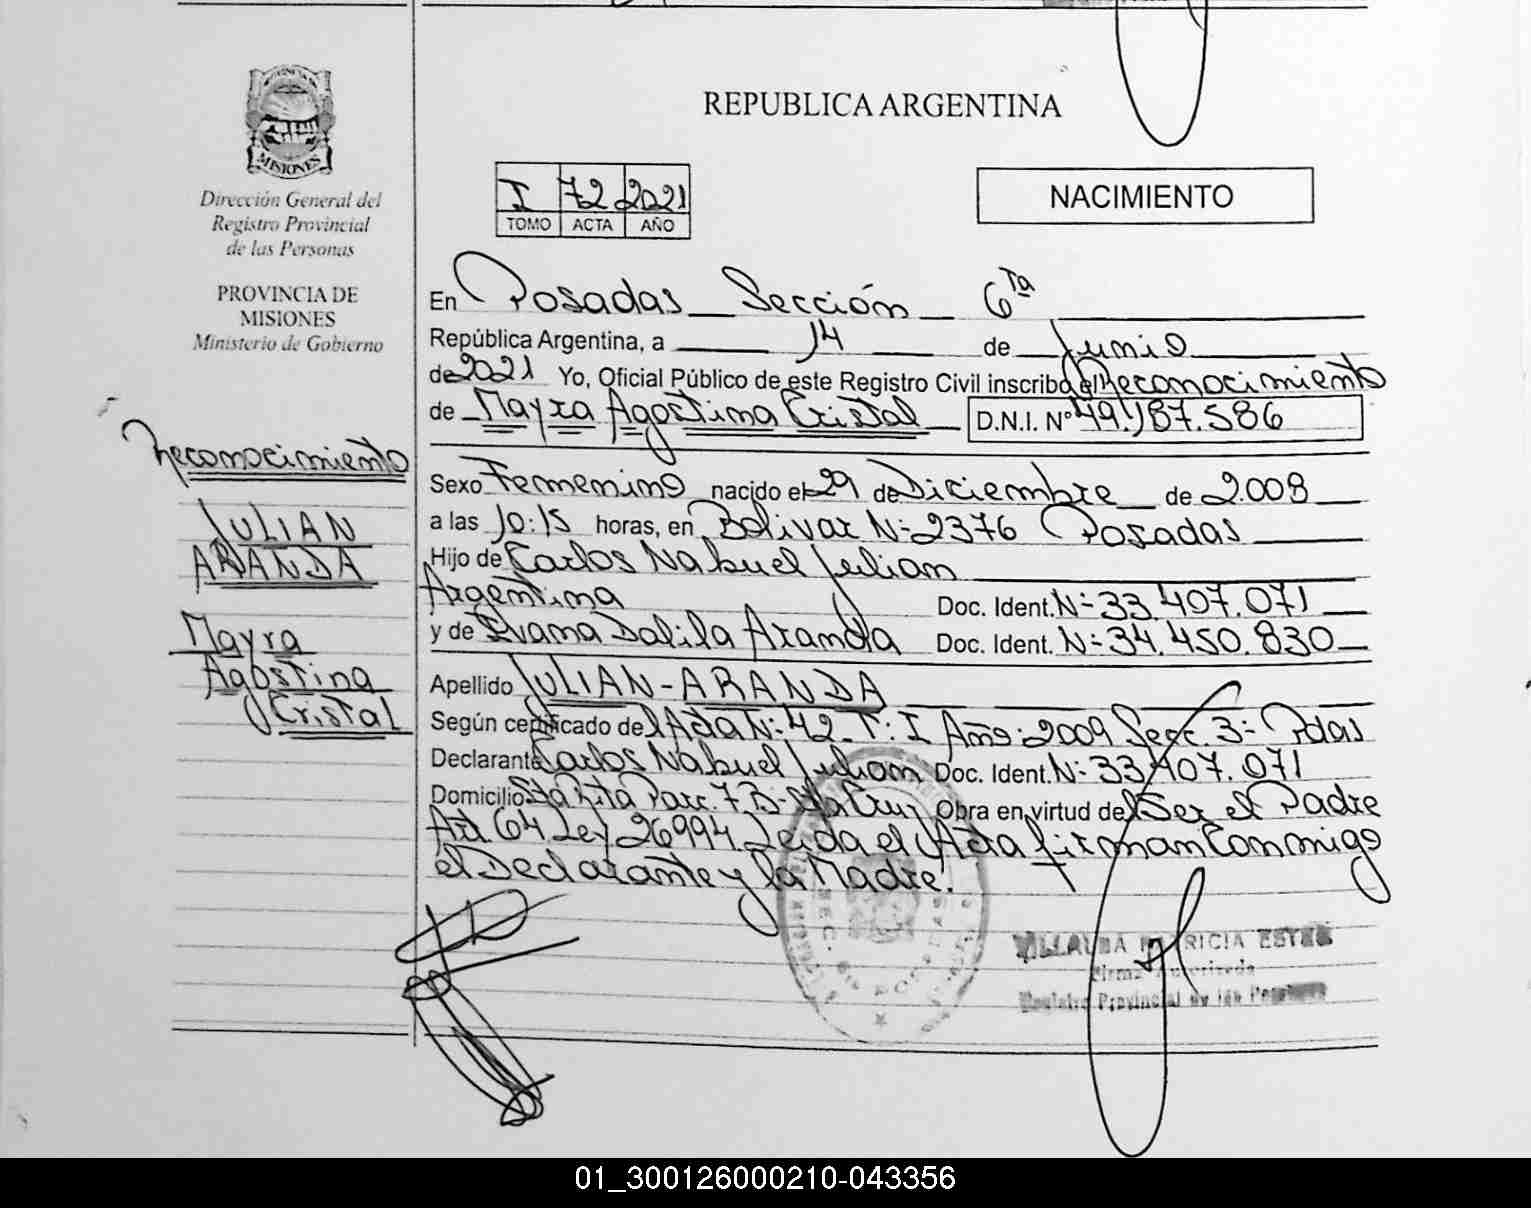 REPUBLICA ARGENTINA
PROVINCIA
MISIONES
Dirección General del
Registro Provincial
de las Personas
PROVINCIA DE
MISIONES
Ministerio de Gobierno
I 72 2021
TOMO ACTA AÑO
NACIMIENTO
En Posadas Sección 6ta
República Argentina, a 14 de Junio
de 2021 Yo, Oficial Público de este Registro Civil inscribo el Reconocimiento
de Mayra Agostina Cristal D.N.I. Nº 49.187.586
Reconocimiento
JULIAN
ARANDA
Mayra
Agostina
Cristal
Sexo Femenino nacido el 29 de Diciembre de 2.008
a las 10:15 horas, en Bolivar N-2376 Posadas
Hijo de Carlos Nahuel Julian
Argentina Doc. Ident. N-33.407.071
y de Ivana Dalila Aranda Doc. Ident. N-34.450.830
Apellido JULIAN-ARANDA
Según certificado del Acta N: 42-T: I Año: 2009 Secc. 3- Pdas
Declarante Carlos Nahuel Julian Doc. Ident. N-33.407.071
Domicilio Sta Rita Parc. 7 B- Sta Cruz Obra en virtud del Ser el Padre
Art. 64 Ley 26994 Leida el Acta firman Conmigo
el Declarante y la Madre.
VILLALBA PATRICIA ESTER
Firma Autorizada
Registro Provincial de las Personas
01_300126000210-043356